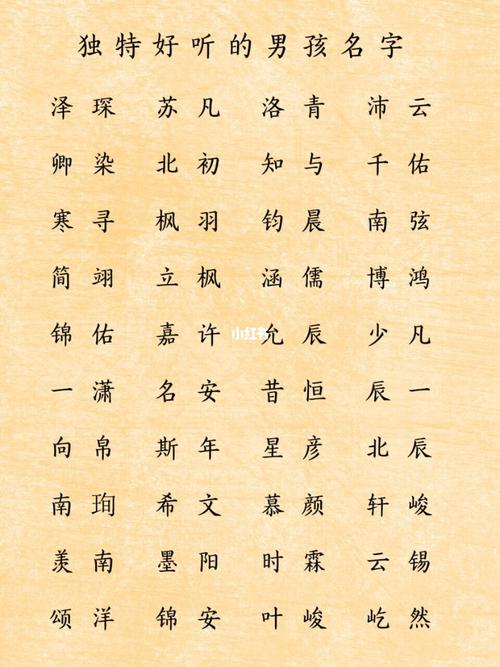 独特好听的男孩名字
泽琛 苏凡 洛青 沛云
卿染 北初 知与 千佑
寒寻 枫羽 钧晨 南弦
简翊 立枫 涵儒 博鸿
锦佑 嘉许 允辰 少凡
小红书
一潇 名安 昔恒 辰一
向帛 斯年 星彦 北辰
南珣 希文 慕颜 轩峻
羡南 墨阳 时霖 云锡
颂洋 锦安 叶峻 屹然